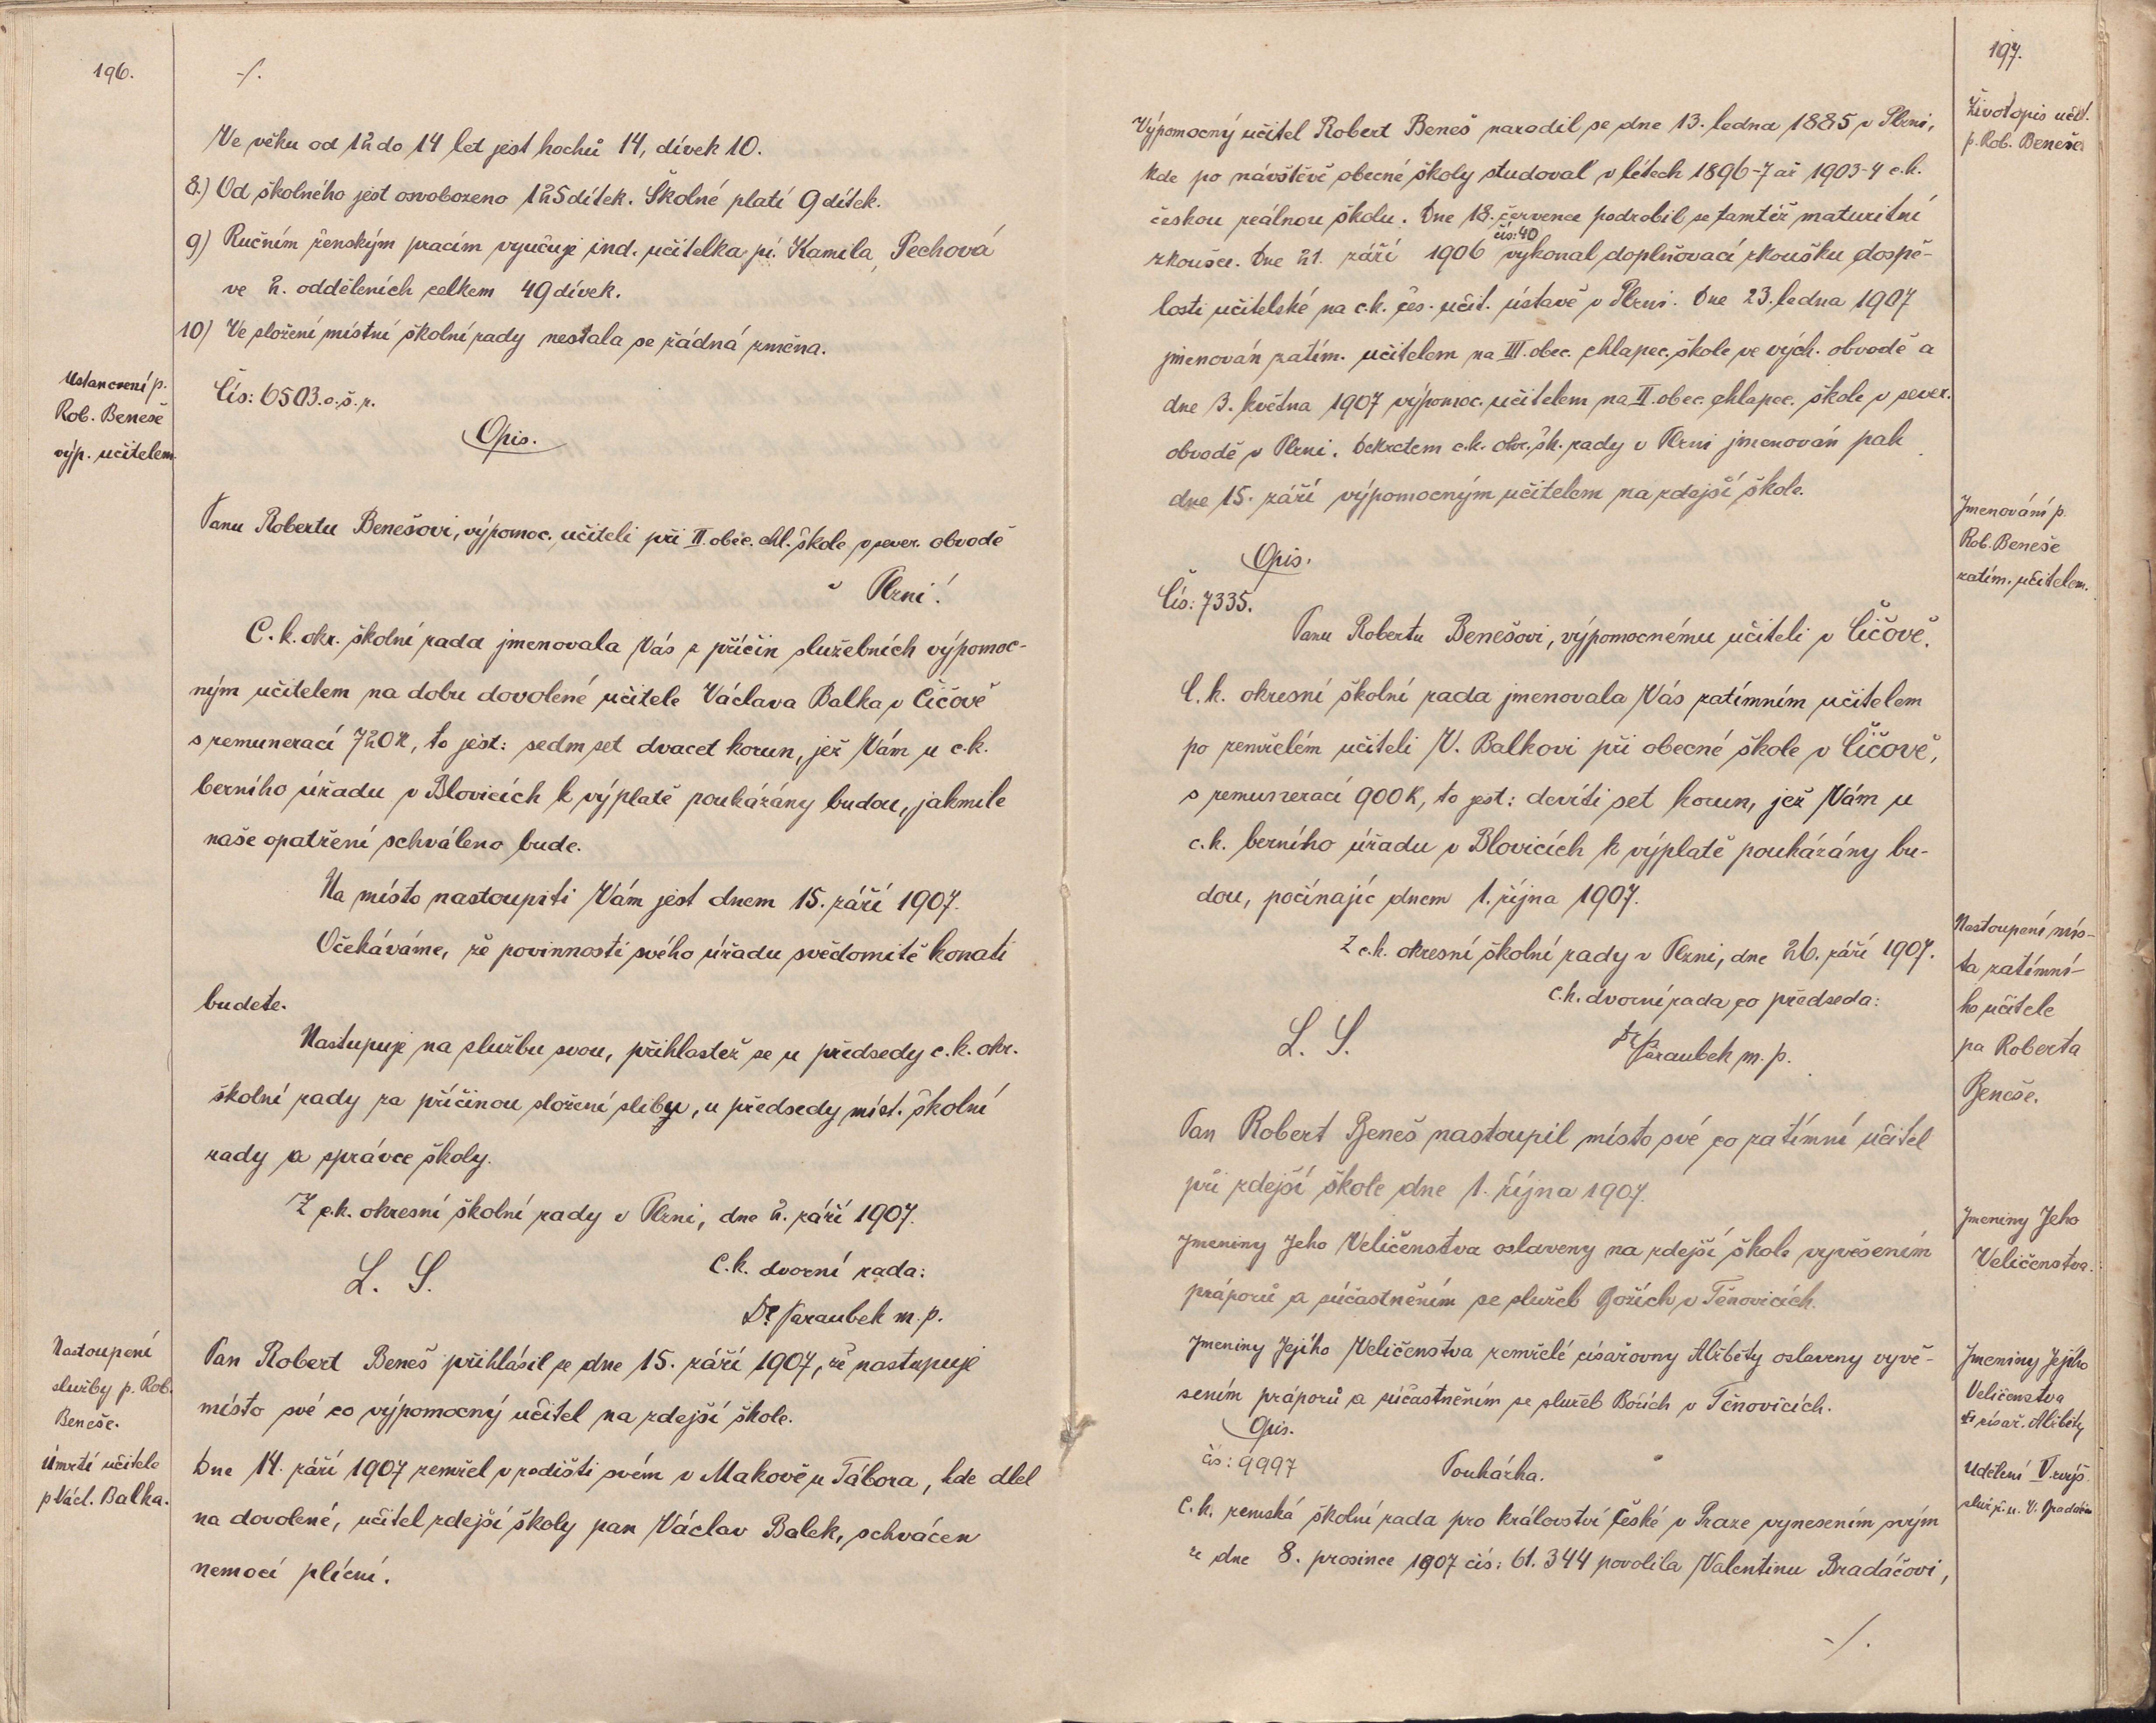 196.
-/.
Ve věku od 12 do 14 let jest hochů 14, dívek 10.
8.) Od školného jest osvobozeno 125 dítek. Školné platí 9 dítek.
9) Ručním ženským pracím vyučuje ind. učitelka pí. Kamila Pechová
ve 2. odděleních celkem 49 dívek.
10) Ve složení místní školní rady nestala se žádná změna.
Ustanovení p.
Rob. Beneše
výp. učitelem
Čís: 6503.o.š.r.
Opis.
Panu Robertu Benešovi, výpomoc. učiteli při II. obec. chl. škole v sever. obvodě
v Plzni!
C. k. okr. školní rada jmenovala Vás z příčin služebních výpomoc-
ným učitelem na dobu dovolené učitele Václava Balka v Čičově
s remunerací 720 K, to jest: sedm set dvacet korun, jež Vám u c.k.
berního úřadu v Blovicích k výplatě poukázány budou, jakmile
naše opatření schváleno bude.
Na místo nastoupiti Vám jest dnem 15. září 1907.
Očekáváme, že povinnosti svého úřadu svědomitě konati
budete.
Nastupuje na službu svou, přihlastež se u předsedy c. k. okr.
školní rady za příčinou složení slibu, u předsedy míst. školní
rady a správce školy.
Z c.k. okresní školní rady v Plzni, dne 2. září 1907.
L. S.
C.k. dvorní rada:
Dr Paraubek m. p.
Nastoupení
služby p. Rob.
Beneše.
Pan Robert Beneš přihlásil se dne 15. září 1907, že nastupuje
místo své co výpomocný učitel na zdejší škole.
Úmrtí učitele
p Václ. Balka.
Dne 14. září 1907 zemřel v rodišti svém v Makově u Tábora, kde dlel
na dovolené, učitel zdejší školy pan Václav Balek, schvácen
nemocí plícní.
197.
Životopis učit.
p. Rob. Beneše
Výpomocný učitel Robert Beneš narodil se dne 13. ledna 1885 v Plzni,
kde po návštěvě obecné školy studoval v létech 1896-7 až 1903-4 c.k.
českou reálnou školu. Dne 18. července podrobil se tamtéž maturitní
čís: 40
zkoušce. Dne 21. září 1906 vykonal doplňovací zkoušku dospě-
losti učitelské na c.k. čes. učit. ústavě v Plzni. Dne 23. ledna 1907
jmenován zatím. učitelem na III. obec. chlapec. škole ve vých. obvodě a
dne 3. května 1907 výpomoc. učitelem na II. obec. chlapec. škole v sever.
obvodě v Plzni. Dekretem c.k. okr. šk. rady v Plzni jmenován pak
dne 15. září výpomocným učitelem na zdejší škole.
Jmenování p.
Rob. Beneše
zatím. učitelem.
Opis.
Čís: 7335.
Panu Robertu Benešovi, výpomocnému učiteli v Čičově.
C. k. okresní školní rada jmenovala Vás zatímním učitelem
po zemřelém učiteli V. Balkovi při obecné škole v Čičově,
s remunerací 900 K, to jest: devíti set korun, jež Vám u
c. k. berního úřadu v Blovicích k výplatě poukázány bu-
dou, počínajíc dnem 1. října 1907.
Z c.k. okresní školní rady v Plzni, dne 26. září 1907.
C.k. dvorní rada co předseda:
L. S.
Dr Paraubek m. p.
Nastoupení mís-
ta zatímní-
ho učitele
pa Roberta
Beneše.
Pan Robert Beneš nastoupil místo své co zatímní učitel
při zdejší škole dne 1. října 1907.
Jmeniny Jeho
Veličenstva.
Jmeniny Jeho Veličenstva oslaveny na zdejší škole vyvěšením
práporů a súčastněním se služeb Božích v Těnovicích.
Jmeniny Jejího
Veličenstva
císař. Alžběty
Jmeniny Jejího Veličenstva zemřelé císařovny Alžběty oslaveny vyvě-
šením práporů a súčastněním se služeb Božích v Těnovicích.
Opis.
čís: 9997
Poukázka.
Udělení V. zvýš.
služ. V. Bradáčovi
C. k. zemská školní rada pro království České v Praze vynesením svým
ze dne 8. prosince 1907 čís: 61.344 povolila Valentinu Bradáčovi,
-/.